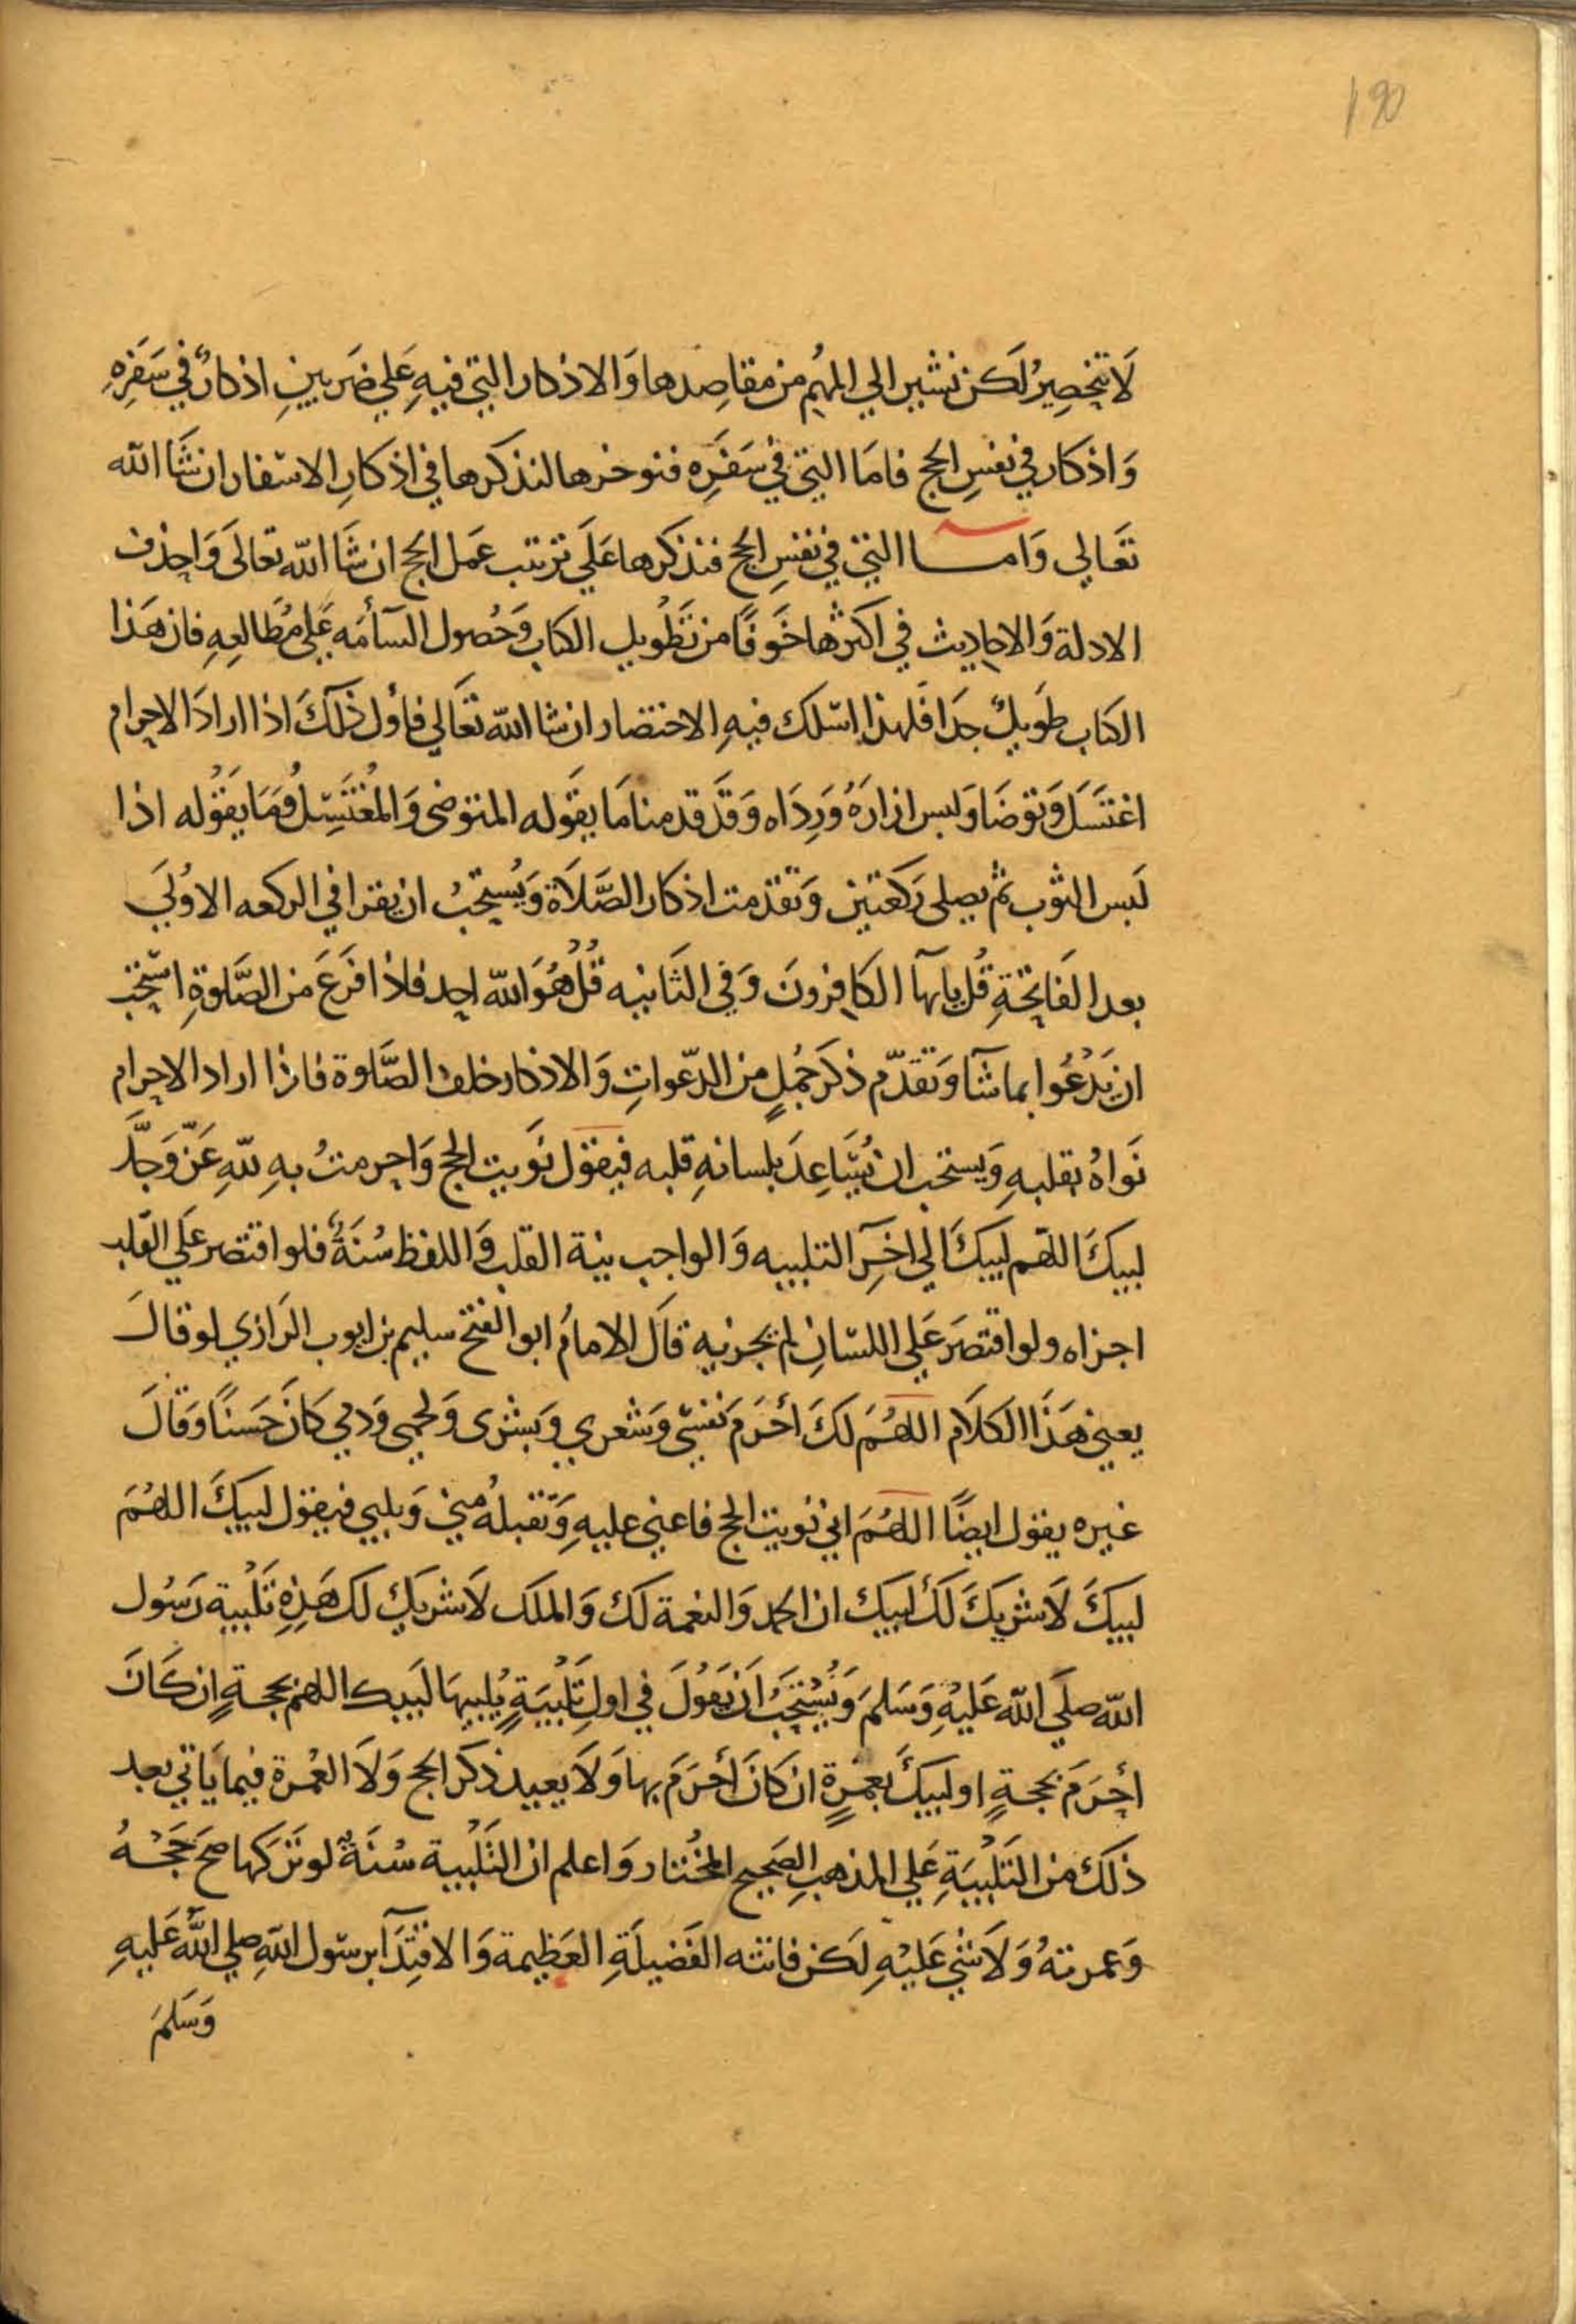 190
لَا تنحَصِرُ لَكن نشير الي المهُم من مقاصِدها وَالاذكار التي فيهِ عَلي ضَربينِ اذكارٌ في سَفَرِهِ
وَاذكار في نفسِ الحج فامَا التي في سَفَرِه فنوخرها لنذكرها في اذكارِ الاسفار ان شَا الله
تَعَالي وَامـــا التي في نفسِ الحج فنذكرها عَلَي ترتيب عَمل الحج ان شَا الله تعالَى وَاحذف
الادلة وَالاحاديث في اكثرها خَوفًا من تَطْويل الكتاب وَحُصول السآمَه عَلي مُطَالعِهِ فان هَذا
الكتاب طَويلٌ جدَا فَلهذا اسلك فيهِ الاختصار ان شا الله تعَالي فاوَل ذلَكَ اذا ارادَ الاحرام
اغتَسَلَ وَتوَضَا وَلبس ازارَهُ وَرِدَاه وَقَد قدمنا مَا يقَوله المتوضى وَالمُغْتَسِلُ وَمَا يَقُوله اذا
لَبس الثوب ثم يصلى رَكعَتين وَتقدمت اذكار الصَّلَاة وَيُستحَبُ ان يقرا في الركعه الاوُليَ
بعد الفَاتِحَةِ قُل يايهآ الكافِرونَ وَفي الثَانيه قُلْ هُوَ الله احد فاذا فَرَغَ من الصَّلوةِ استحَب
ان يَدْعُوا بما شَآ وَتقدّم ذكرَ جُمَلٍ من الدّعواتِ وَالاذكار خلف الصَّلوة فاذا اراد الاحرام
نَواهُ بقلبهِ وَيستحَب ان يُسَاعِدَ بلسانهِ قلبه فيقول نَويت الحج وَاحرمتُ بهِ للهِ عَزّ وَجلَّ
لبيكَ اللهم لَبيكَ الَي اخِرِ التلبيه وَالواجب نية القلب وَاللفظ سُنَةٌ فلو اقتصر عَلَي القلب
اجزاه ولو اقتصَر عَلي اللسَانِ لم يجزيه قالَ الامامُ ابو الفتح سليم بن ايوب الرَازي لو قالَ
يعني هَذَا الكلَام اللهُمَ لَكَ أحْرَمَ نَفسي وَشعري وَبشرى وَلحمي وَدمي كانَ حَسَنًا وَقالَ
غيره يقول ايضًا اللهُمَ اني نويت الحج فاعني عليهِ وَتقبلهُ مني وَيلبي فيقول لبيكَ اللهُمَ
لبيكَ لَا شريكَ لَكَ لبيك ان الحمد وَالنعمة لَك وَالملك لَا شريك لَك هَذِهِ تَلْبية رَسُول
الله صلَي الله عَليْهِ وَسَلمَ وَيُسْتَحَبُ اَن يَقُولَ في اولِ تَلْبيَةٍ يُلبيهَا لَبيك اللهم بحجةٍ ان كَانَ
أحْرَمَ بحجةٍ او لبيكَ بعمرةٍ ان كانَ أحْرَمَ بها وَلَا يعيد ذكر الحج وَلَا العُمرة فيما يَاتي بعد
ذَلك من التَلْبيَةِ عَلي المذهبِ الصَحيح المُختار وَاعلم ان التَلْبية سُنَةٌ لو تَرَكها صحَ حَجُـهُ
وَعمرتهُ وَلَا شي عَليْهِ لَكن فاتته الفَضيلَةِ العَظيمة وَالاقتِدَآ برسول اللهِ صلي اللَّه عَليهِ
وَسَلمَ